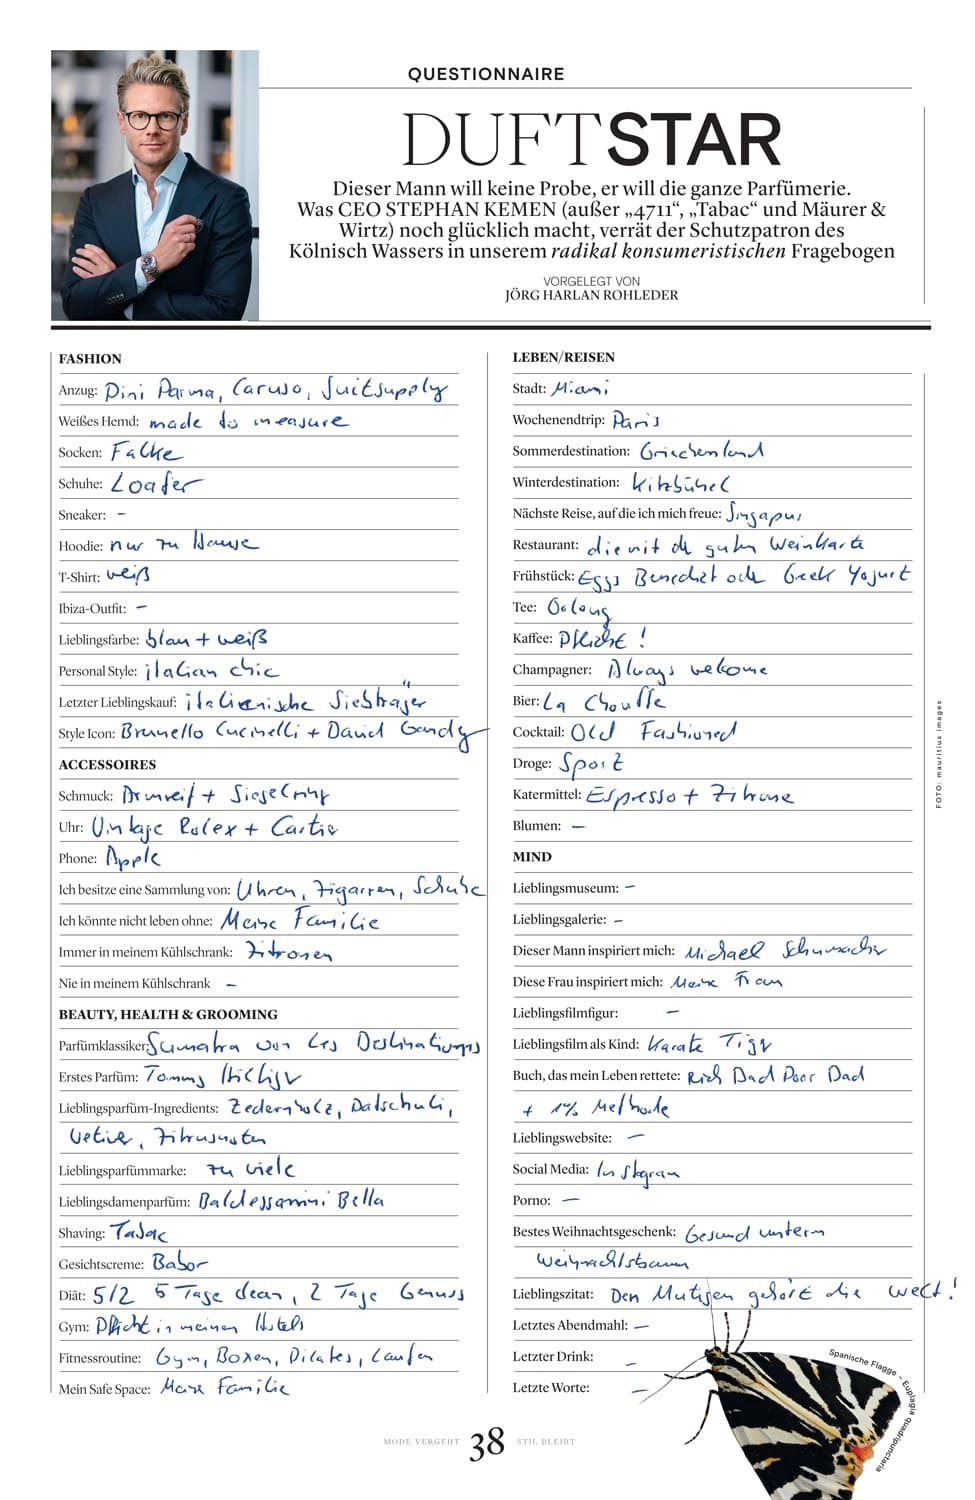 QUESTIONNAIRE
DUFTSTAR
Dieser Mann will keine Probe, er will die ganze Parfümerie.
Was CEO STEPHAN KEMEN (außer „4711“, „Tabac“ und Mäurer &
Wirtz) noch glücklich macht, verrät der Schutzpatron des
Kölnisch Wassers in unserem radikal konsumeristischen Fragebogen
VORGELEGT VON
JÖRG HARLAN ROHLEDER
FASHION
Anzug: Pini Parma, Caruso, Suitsupply
Weißes Hemd: made to measure
Socken: Falke
Schuhe: Loafer
Sneaker: –
Hoodie: nur zu Hause
T-Shirt: weiß
Ibiza-Outfit: –
Lieblingsfarbe: blau + weiß
Personal Style: italian chic
Letzter Lieblingskauf: italienische Siebträger
Style Icon: Brunello Cucinelli + David Gandy
ACCESSOIRES
Schmuck: Armreif + Siegelring
Uhr: Vintage Rolex + Cartier
Phone: Apple
Ich besitze eine Sammlung von: Uhren, Zigarren, Schuhe
Ich könnte nicht leben ohne: Meine Familie
Immer in meinem Kühlschrank: Zitronen
Nie in meinem Kühlschrank –
BEAUTY, HEALTH & GROOMING
Parfümklassiker: Sumatra von Les Destinations
Erstes Parfüm: Tommy Hilfiger
Lieblingsparfüm-Ingredients: Zedernholz, Patschuli,
Vetiver, Zitrusnoten
Lieblingsparfümmarke: zu viele
Lieblingsdamenparfüm: Baldessarini Bella
Shaving: Tabac
Gesichtscreme: Babor
Diät: 5/2 5 Tage clean, 2 Tage Genuss
Gym: Pflicht in meinen Hotels
Fitnessroutine: Gym, Boxen, Pilates, Laufen
Mein Safe Space: Meine Familie
LEBEN/REISEN
Stadt: Miami
Wochenendtrip: Paris
Sommerdestination: Griechenland
Winterdestination: Kitzbühel
Nächste Reise, auf die ich mich freue: Singapur
Restaurant: die mit der guten Weinkarte
Frühstück: Eggs Benedict oder Greek Yogurt
Tee: Oolong
Kaffee: Pflicht!
Champagner: Always welcome
Bier: La Chouffe
Cocktail: Old Fashioned
Droge: Sport
Katermittel: Espresso + Zitrone
Blumen: –
MIND
Lieblingsmuseum: –
Lieblingsgalerie: –
Dieser Mann inspiriert mich: Michael Schumacher
Diese Frau inspiriert mich: Meine Frau
Lieblingsfilmfigur: –
Lieblingsfilm als Kind: Karate Tiger
Buch, das mein Leben rettete: Rich Dad Poor Dad
+ 1% Methode
Lieblingswebsite: –
Social Media: Instagram
Porno: –
Bestes Weihnachtsgeschenk: Gesund unterm
Weihnachtsbaum
Lieblingszitat: Den Mutigen gehört die Welt!
Letztes Abendmahl: –
Letzter Drink: –
Letzte Worte: –
FOTO: mauritius images
Spanische Flagge – Euplagia quadripunctaria
MODE VERGEHT 38 STIL BLEIBT